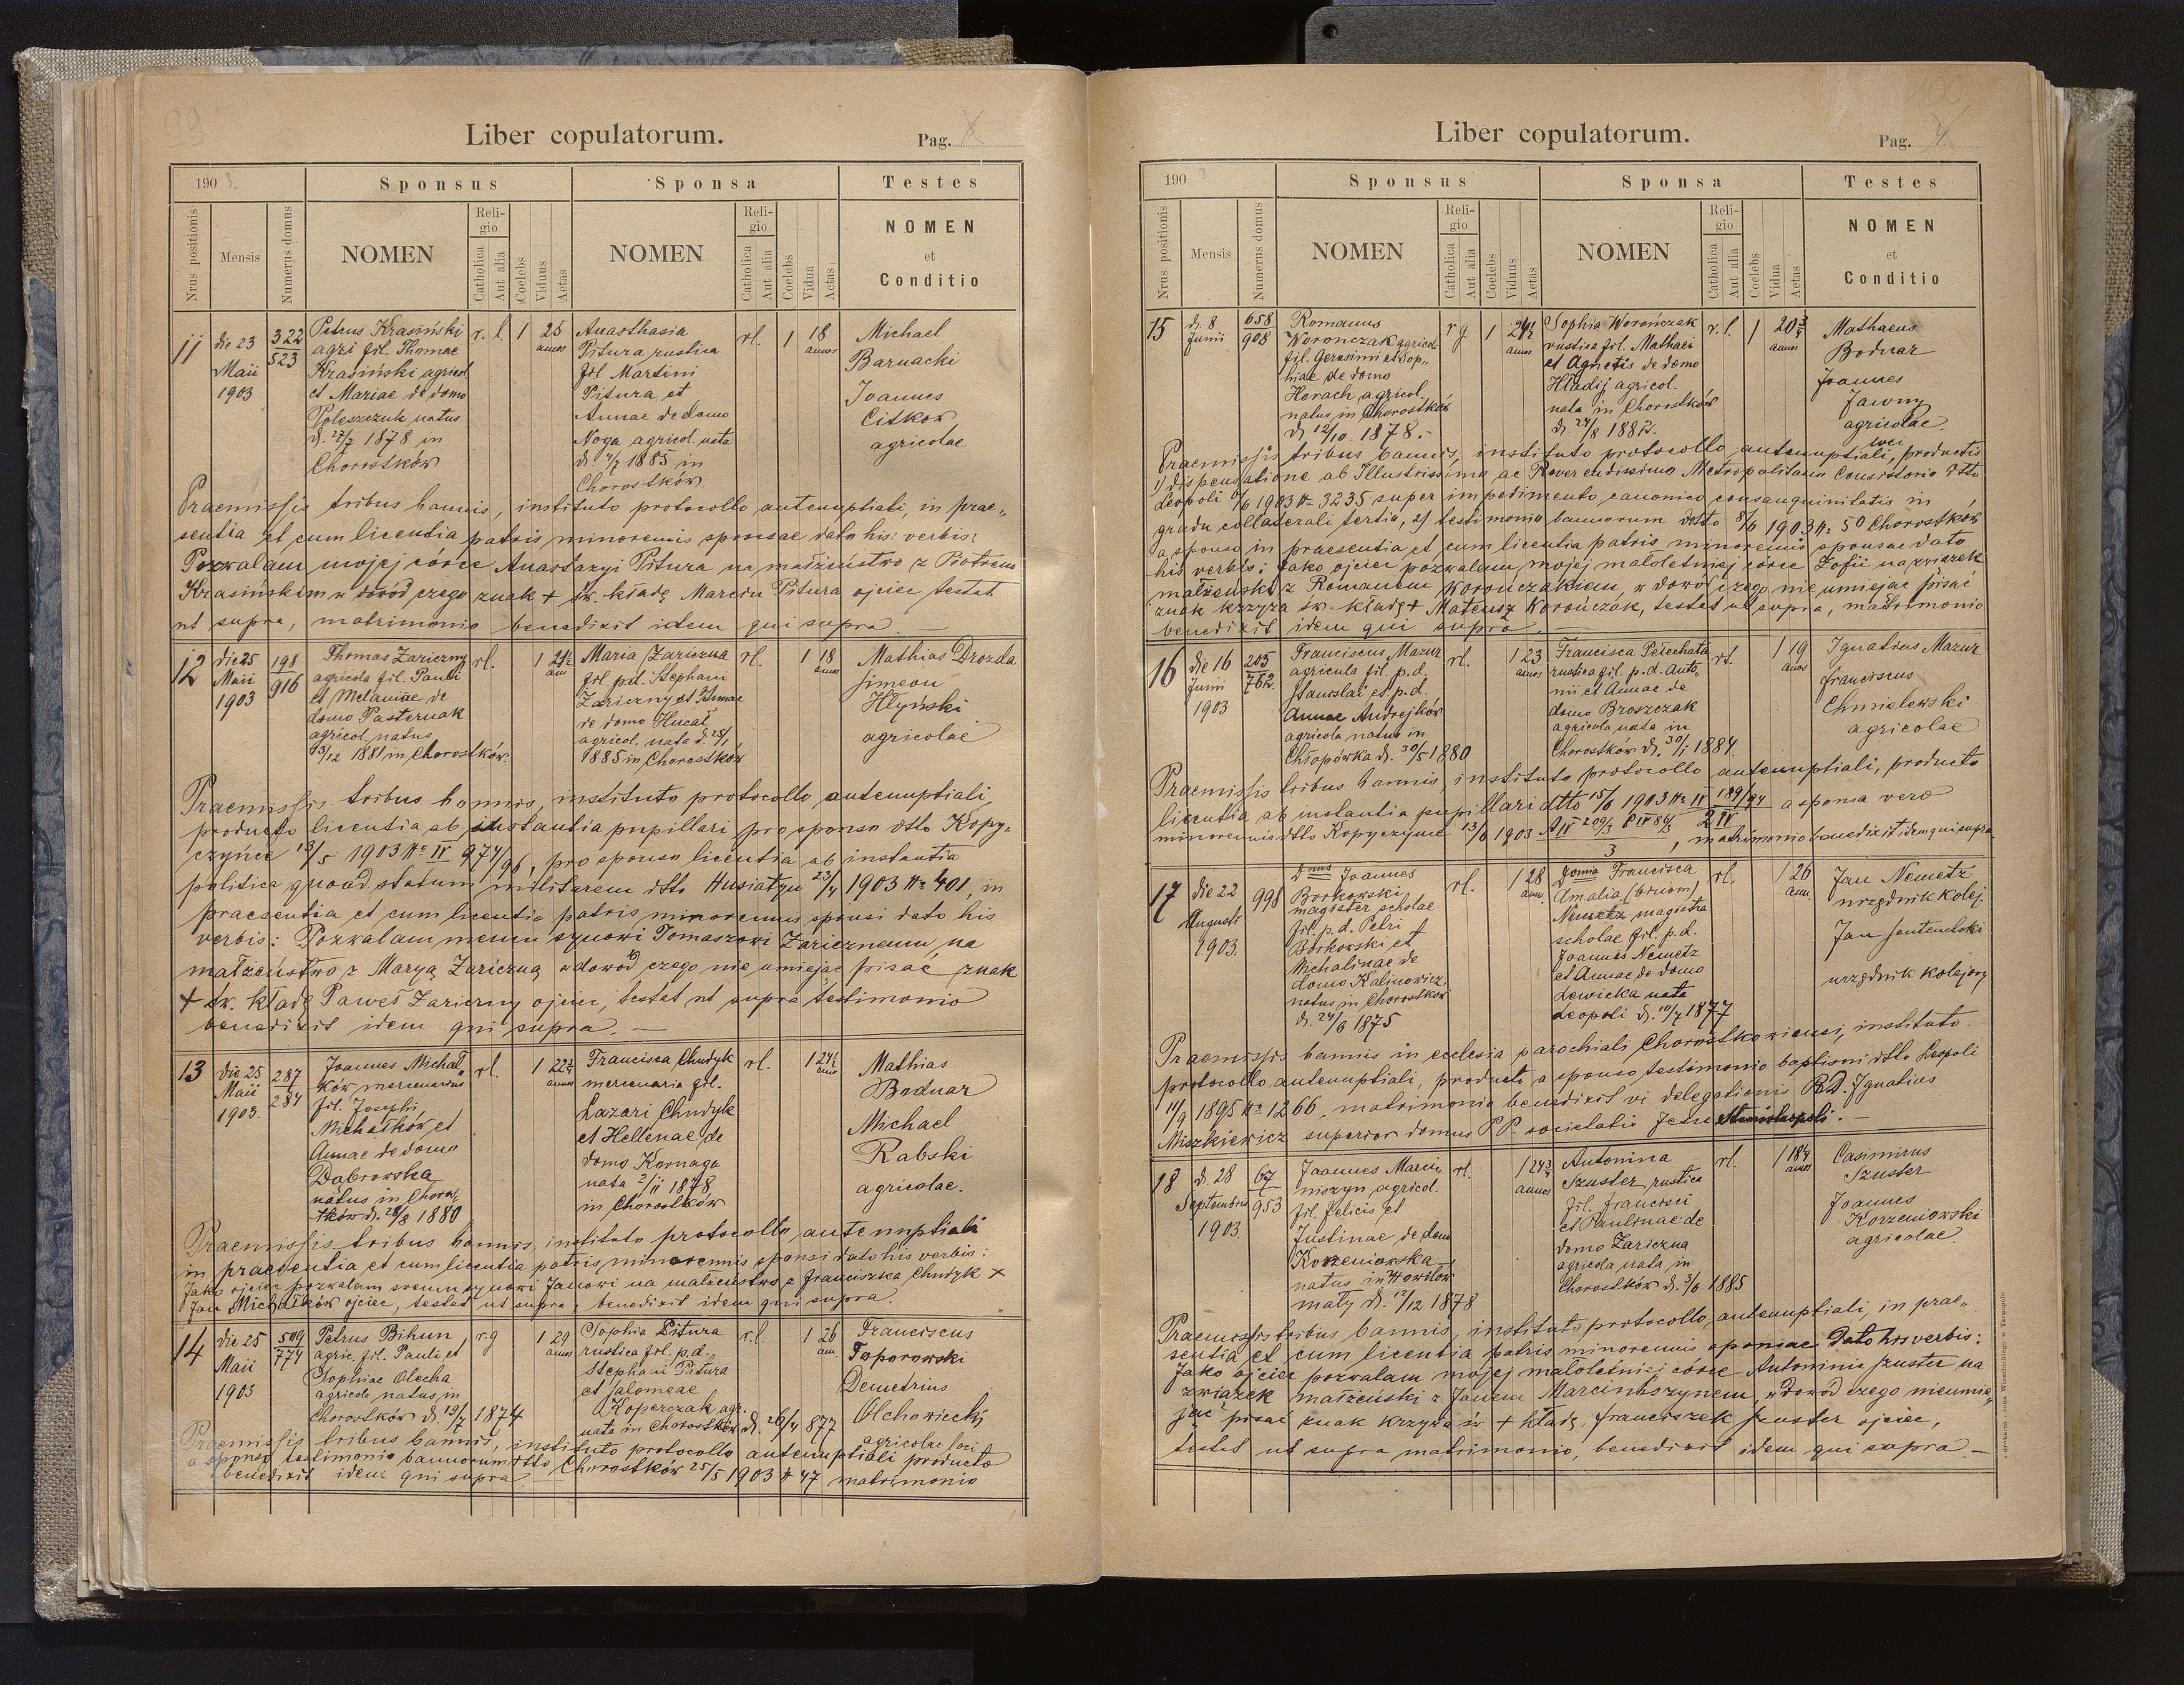 99
Liber copulatorum.
Pag. X
190 3.
Sponsus
Sponsa
Testes
Nrus positionis
Mensis
Numerus domus
NOMEN
Religio
Catholica
Aut alia
Coelebs
Viduus
Aetas
NOMEN
Religio
Catholica
Aut alia
Coelebs
Vidua
Aetas
NOMEN
et
Conditio
11
die 23
Maii
1903
322
523
Petrus Krasiński
agri fil. Thomae
Krasiński agricol
et Mariae de domo
Poleszczuk natus
d. 27/7 1878 in
Chorostków
r. l
1
25
annos
Anasthasia
Pitura rustica
fil Martini
Pitura et
Annae de domo
Noga agricol. nata
d. 4/7 1885 in
Chorostków.
rl.
1
18
annos
Michael
Barnacki
Joannes
Citkow
agricolae
Praemissis tribus bannis, instituto protocollo antenuptiali, in prae„
sentia et cum licentia patris minorennis sponsae dato his: verbis:
Pozwalam mojej córce Anastazyi Pitura na małżeństwo z Piotrem
Krasińskim w dowód czego znak + św. kładę Marcin Pitura ojciec testat
ut supra, matrimonio benedixit idem qui supra
12
die 25
Maii
1903
198
916
Thomas Zariczny
agricola fil. Pauli
et Melaniae de
domo Pasternak
agricol. natus
13/12 1881 in Chorostków.
rl.
1
21½
ann
Maria Zariczna
fil pd. Stephani
Zariczny et Annae
de domo Hucał
agricol. nata d. 25/1
1885 in Chorostków
rl.
1
18
annos
Mathias Drozda
Simeon
Hlyński
agricolae
Praemissis tribus bannis, instituto protocollo antenuptiali,
producto licentia ab instantia pupillari pro sponsa dtto Kopy„
czyńce 13/5 1903 No IV 974/96, pro sponso licentia ab instantia
politica quoad statum militarem dtto Husiatyn 23/4 1903 No 401, in
praesentia et cum licentia patris minorennis sponsi dato his
verbis: Pozwalam memu synowi Tomaszowi Zaricznemu na
małżeństwo z Maryą Zariczną w dowód czego nie umiejąc pisać znak
+ św. kładę Paweł Zariczny ojciec, testat ut supra testimonio
benedixit idem qui supra. —
13
die 25
Maii
1903.
287
284
Joannes Michał„
ków mercenarius
fil. Josephi
Michałków et
Annae de domo
Dąbrowska
natus in Choros„
tków d. 28/8 1880
rl.
1
22¾
annos
Francisca Chudyk
mercenaria fil.
Lazari Chudyk
et Hellenae de
domo Kornaga
nata 2/11 1878
in Chorostków
rl.
1
24½
anno
Mathias
Bodnar
Michael
Rabski
agricolae.
Praemissis tribus bannis, instituto protocollo antenuptiali
in praesentia et cum licentia patris minorennis sponsi dato his verbis:
Jako ojciec pozwalam swemu synowi Janowi na małżeństwo z Franciszką Chudyk +
Jan Michałków ojciec, testat ut supra, benedixit idem qui supra.
14
die 25
Maii
1903
509
774
Petrus Bihun
agric. fil. Pauli et
Sophiae Olecha
agricola natus in
Chorostków d. 19/7 1874
r. g
1
29
annos
Sophia Pitura
rustica fil. p.d.
Stephani Pitura
et Salomeae
Koperczak agr.
nata in Chorostków d. 26/4 877
r. l.
1
26
an.
Franciscus
Toporowski
Demetrius
Olchowiecki
agricolae loci
Praemissis tribus bannis, instituto protocollo antenuptiali producto
a sponso testimonio bannorum dtto Chorostków 25/5 1903 No 47 matrimonio
benedixit idem qui supra
100
Liber copulatorum.
Pag. 4
190 3
Sponsus
Sponsa
Testes
Nrus positionis
Mensis
Numerus domus
NOMEN
Religio
Catholica
Aut alia
Coelebs
Viduus
Aetas
NOMEN
Religio
Catholica
Aut alia
Coelebs
Vidua
Aetas
NOMEN
et
Conditio
15
d. 8
Junii
658
908
Romanus
Worończak agricol
fil. Gerasimi et Sop„
hiae de domo
Horach agricol.
natus in Chorostków
d. 12/10. 1878.-
r g.
1
24½
annos
Sophia Worończak
rustica fil. Mathaei
et Agnetis de domo
Hładij agricol.
nata in Chorostków
d. 24/8 1882.
r. l.
1
20¾
annos
Mathaeus
Bodnar
Joannes
Jawny
agricolae
loci
Praemissis tribus bannis, instituto protocollo antenuptiali, productis
1) dispensatione ab Illustrissimo ac Reverendissimo Metropolitano Consistorio dtto
Leopoli 6/6 1903 No 3235 super impedimento canonico consanguinitatis in
gradu collaterali tertia, 2) testimonio bannorum dtto 8/6 1903 No 50 Chorostków
a sponso in praesentia et cum licentia patris minorennis sponsae dato
his verbis: Jako ojciec pozwalam mojej małoletniej córce Zofii na związek
małżeński z Romanem Worończakiem, w dowód czego nie umiejąc pisać
znak krzyża św. kładę + Mateusz Worończak, testat ut supra, matrimonio
benedixit idem qui supra. —
16
die 16
Junii
1903
205
762
Franciscus Mazur
agricola fil. p.d.
Stanislai et p.d.
Annae Andrejków
agricola natus in
Chłopówka d. 30/5 1880
rl.
1
23
annos
Francisca Pełechata
rustica fil. p.d. Anto„
nii et Annae de
domo Broszczak
agricola nata in
Chorostków d. 30/1 1884.
rl.
1
19
anos
Ignatius Mazur
Franciscus
Chmielewski
agricolae
Praemissis tribus bannis, instituto protocollo antenuptiali, producto
licentia ab instantia pupillari dtto 15/6 1903 No IV 189/94 a sponsa vero
minorennis dtto Kopyczyńce 13/6 1903 A IV 209/3 P IV 86/3, matrimonio benedixit idem qui supra.
17
die 22
Augusti
1903.
998
Dnus Joannes
Borkowski
magister scholae
fil. p. d. Petri
Borkowski et
Michalinae de
domo Kalinowicz.
natus in Chorostków
d. 24/6 1875
rl.
1
28
ann.
Domina Francisca
Amalia (bnom)
Nemetz magistra
scholae fil. p.d.
Joannis Nemetz
et Annae de domo
Lewicka nata
Leopoli d. 10/7 1877
rl.
1
26
ann.
Jan Nemetz
urzędnik kolej.
urzędnik kolejowy
Praemissis bannis in ecclesia parochiali Chorostkowiensi, instituto
protocollo antenuptiali, producto a sponso testimonio baptismi dtto Leopoli
11/9 1895 No 1266, matrimonio benedixit vi delegationis RD. Ignatius
Miszkiewicz superior domus PP. societatis Jesu Stanislaopoli. —
18
d. 28
Septembris
1903.
67
953
Joannes Marci„
niszyn agricol.
fil. Felicis et
Justinae de domo
Korzeniowska
natus in Howiłow
mały d. 12/12 1878
rl.
1
24¾
annos
Antonina
Szuster rustica
fil. Francisci
et Paulinae de
domo Zariczna
agricola nata in
Chorostków d. 3/6 1885
rl.
1
18¼
annos
Casimirus
Szuster
Joannes
Korzeniowski
agricolae.
Praemissis tribus bannis, instituto protocollo antenuptiali, in prae„
sentia et cum licentia patris minorennis sponsae dato his verbis:
Jako ojciec pozwalam mojej małoletniej córce Antoninie Szuster na
związek małżeński z Janem Marciniszynem, w dowód czego nieumie„
jąc pisać znak krzyża św + kładę, Franciszek Szuster ojciec,
testat ut supra matrimonio, benedixit idem qui supra —